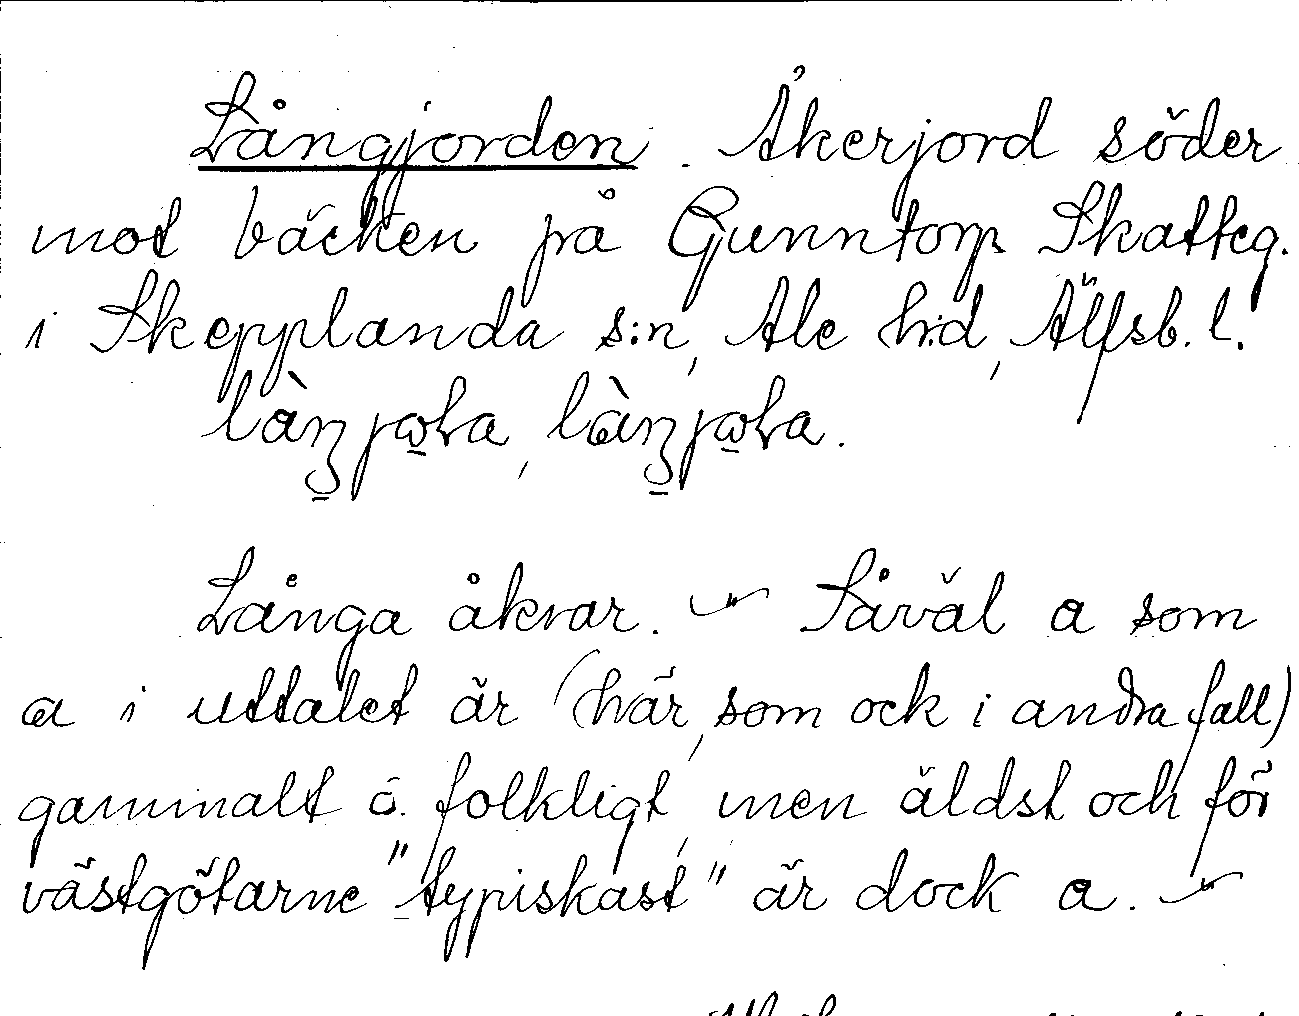 Långjorden. Åkerjord söder
mot bäcken på Gunntorp Skatteg.
i Skepplanda s:n, Ale h:d, Älfsb. l.
Långa åkrar. Såväl a som
a i uttalet är (här, som ock i andra fall)
gammalt o. folkligt, men äldst och för
västgötarne "typiskast" är dock a.